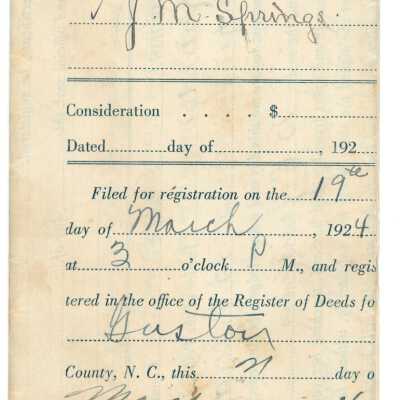 J M Springs.
Consideration . . . . $
Dated day of , 192
Filed for régistration on the 19th
day of March , 1924
at 3 o'clock P M., and regis
tered in the office of the Register of Deeds fo
Gaston
County, N. C., this day o